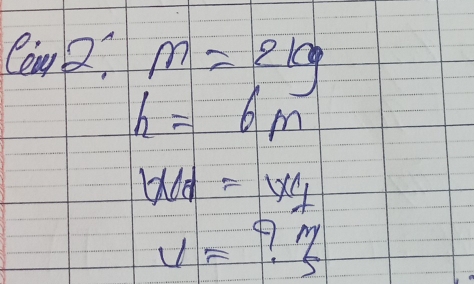 Câu 2: m = 2 kg
h = 6 m
Wđ = Wt
v = ? m/s